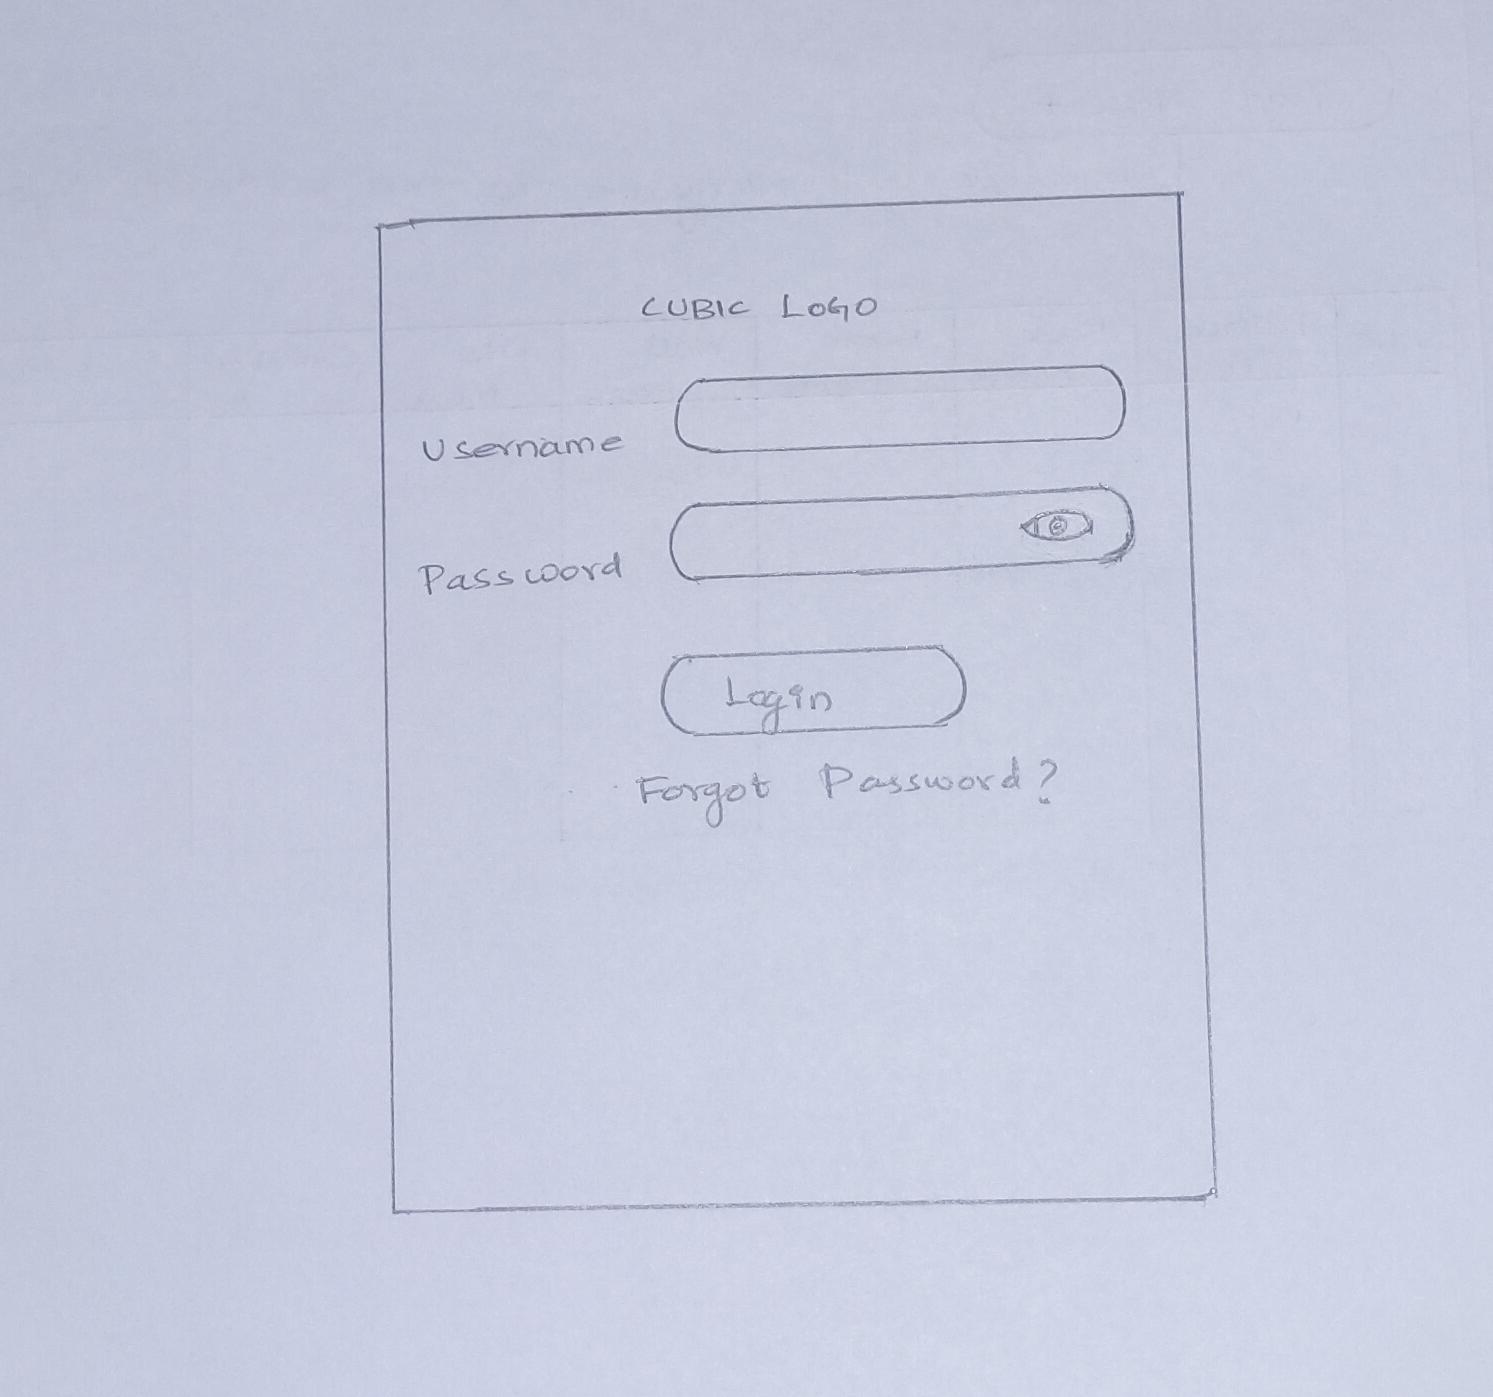 CUBIC LOGO
Username
Password
Login
Forgot Password?